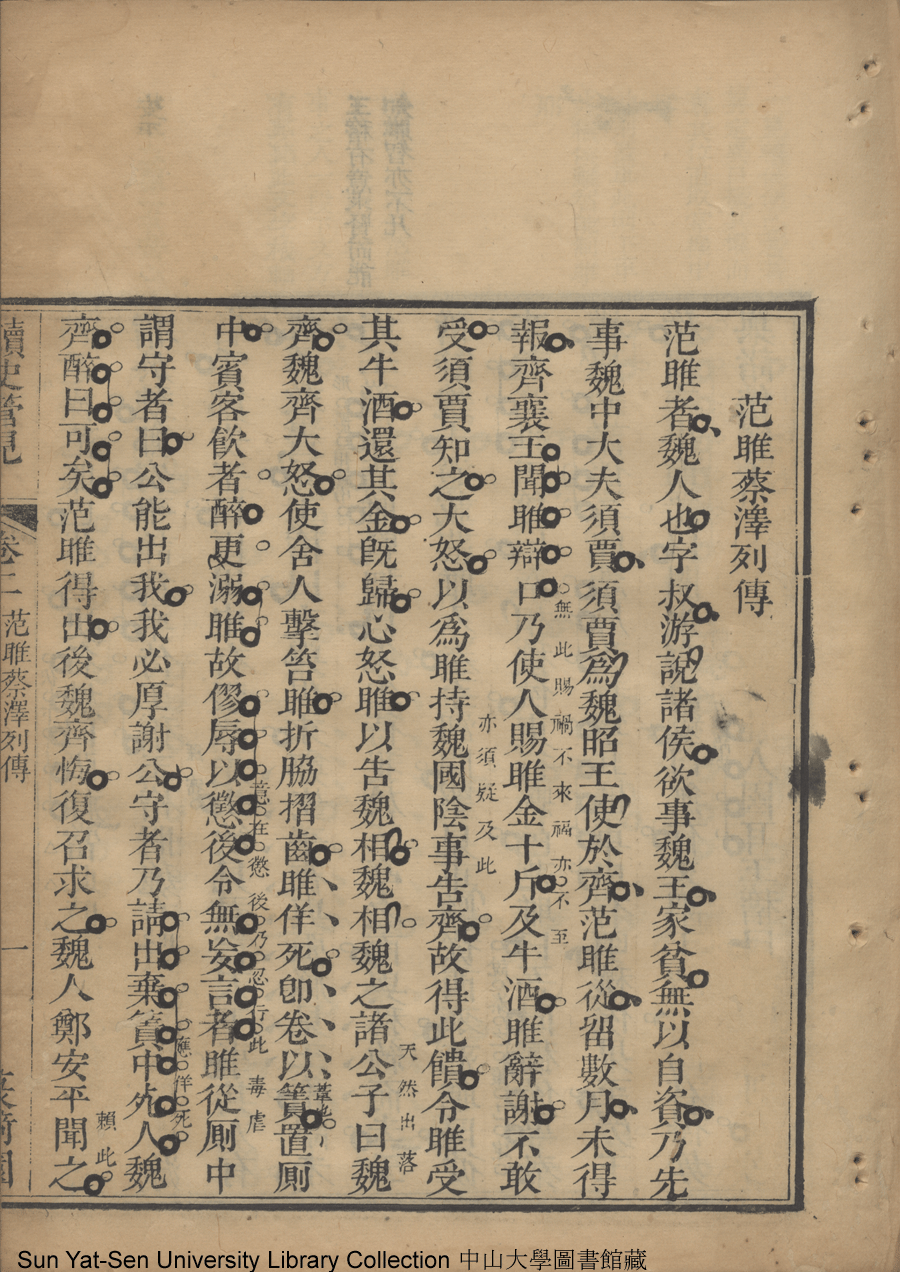 范雎蔡澤列傳
范雎者魏人也字叔游說諸侯欲事魏王家貧無以自資乃先
事魏中大夫須賈須賈爲魏昭王使於齊范雎從留數月未得
報齊襄王聞雎辯口乃使人賜雎金十斤及牛酒雎辭謝不敢
無此賜禍不來福亦不至
受須賈知之大怒以爲雎持魏國陰事告齊故得此饋令雎受
亦須疑及此
其牛酒還其金旣歸心怒雎以告魏相魏相魏之諸公子曰魏
天然出落
齊魏齊大怒使舍人擊笞雎折脇摺齒雎佯死卽卷以簀置厠
葦也
中賓客飲者醉更溺雎故僇辱以懲後令無妄言者雎從厠中
意在懲後乃忍行此毒虐
謂守者曰公能出我我必厚謝公守者乃請出棄簀中死人魏
應佯死
齊醉曰可矣范雎得出後魏齊悔復召求之魏人鄭安平聞之
賴此
讀史管見
卷二
范雎蔡澤列傳
一
Sun Yat-Sen University Library Collection 中山大學圖書館藏